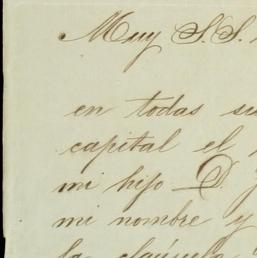 Muy S. S.
en todas su
capital el
mi hijo D.
mi nombre y
la cláusula